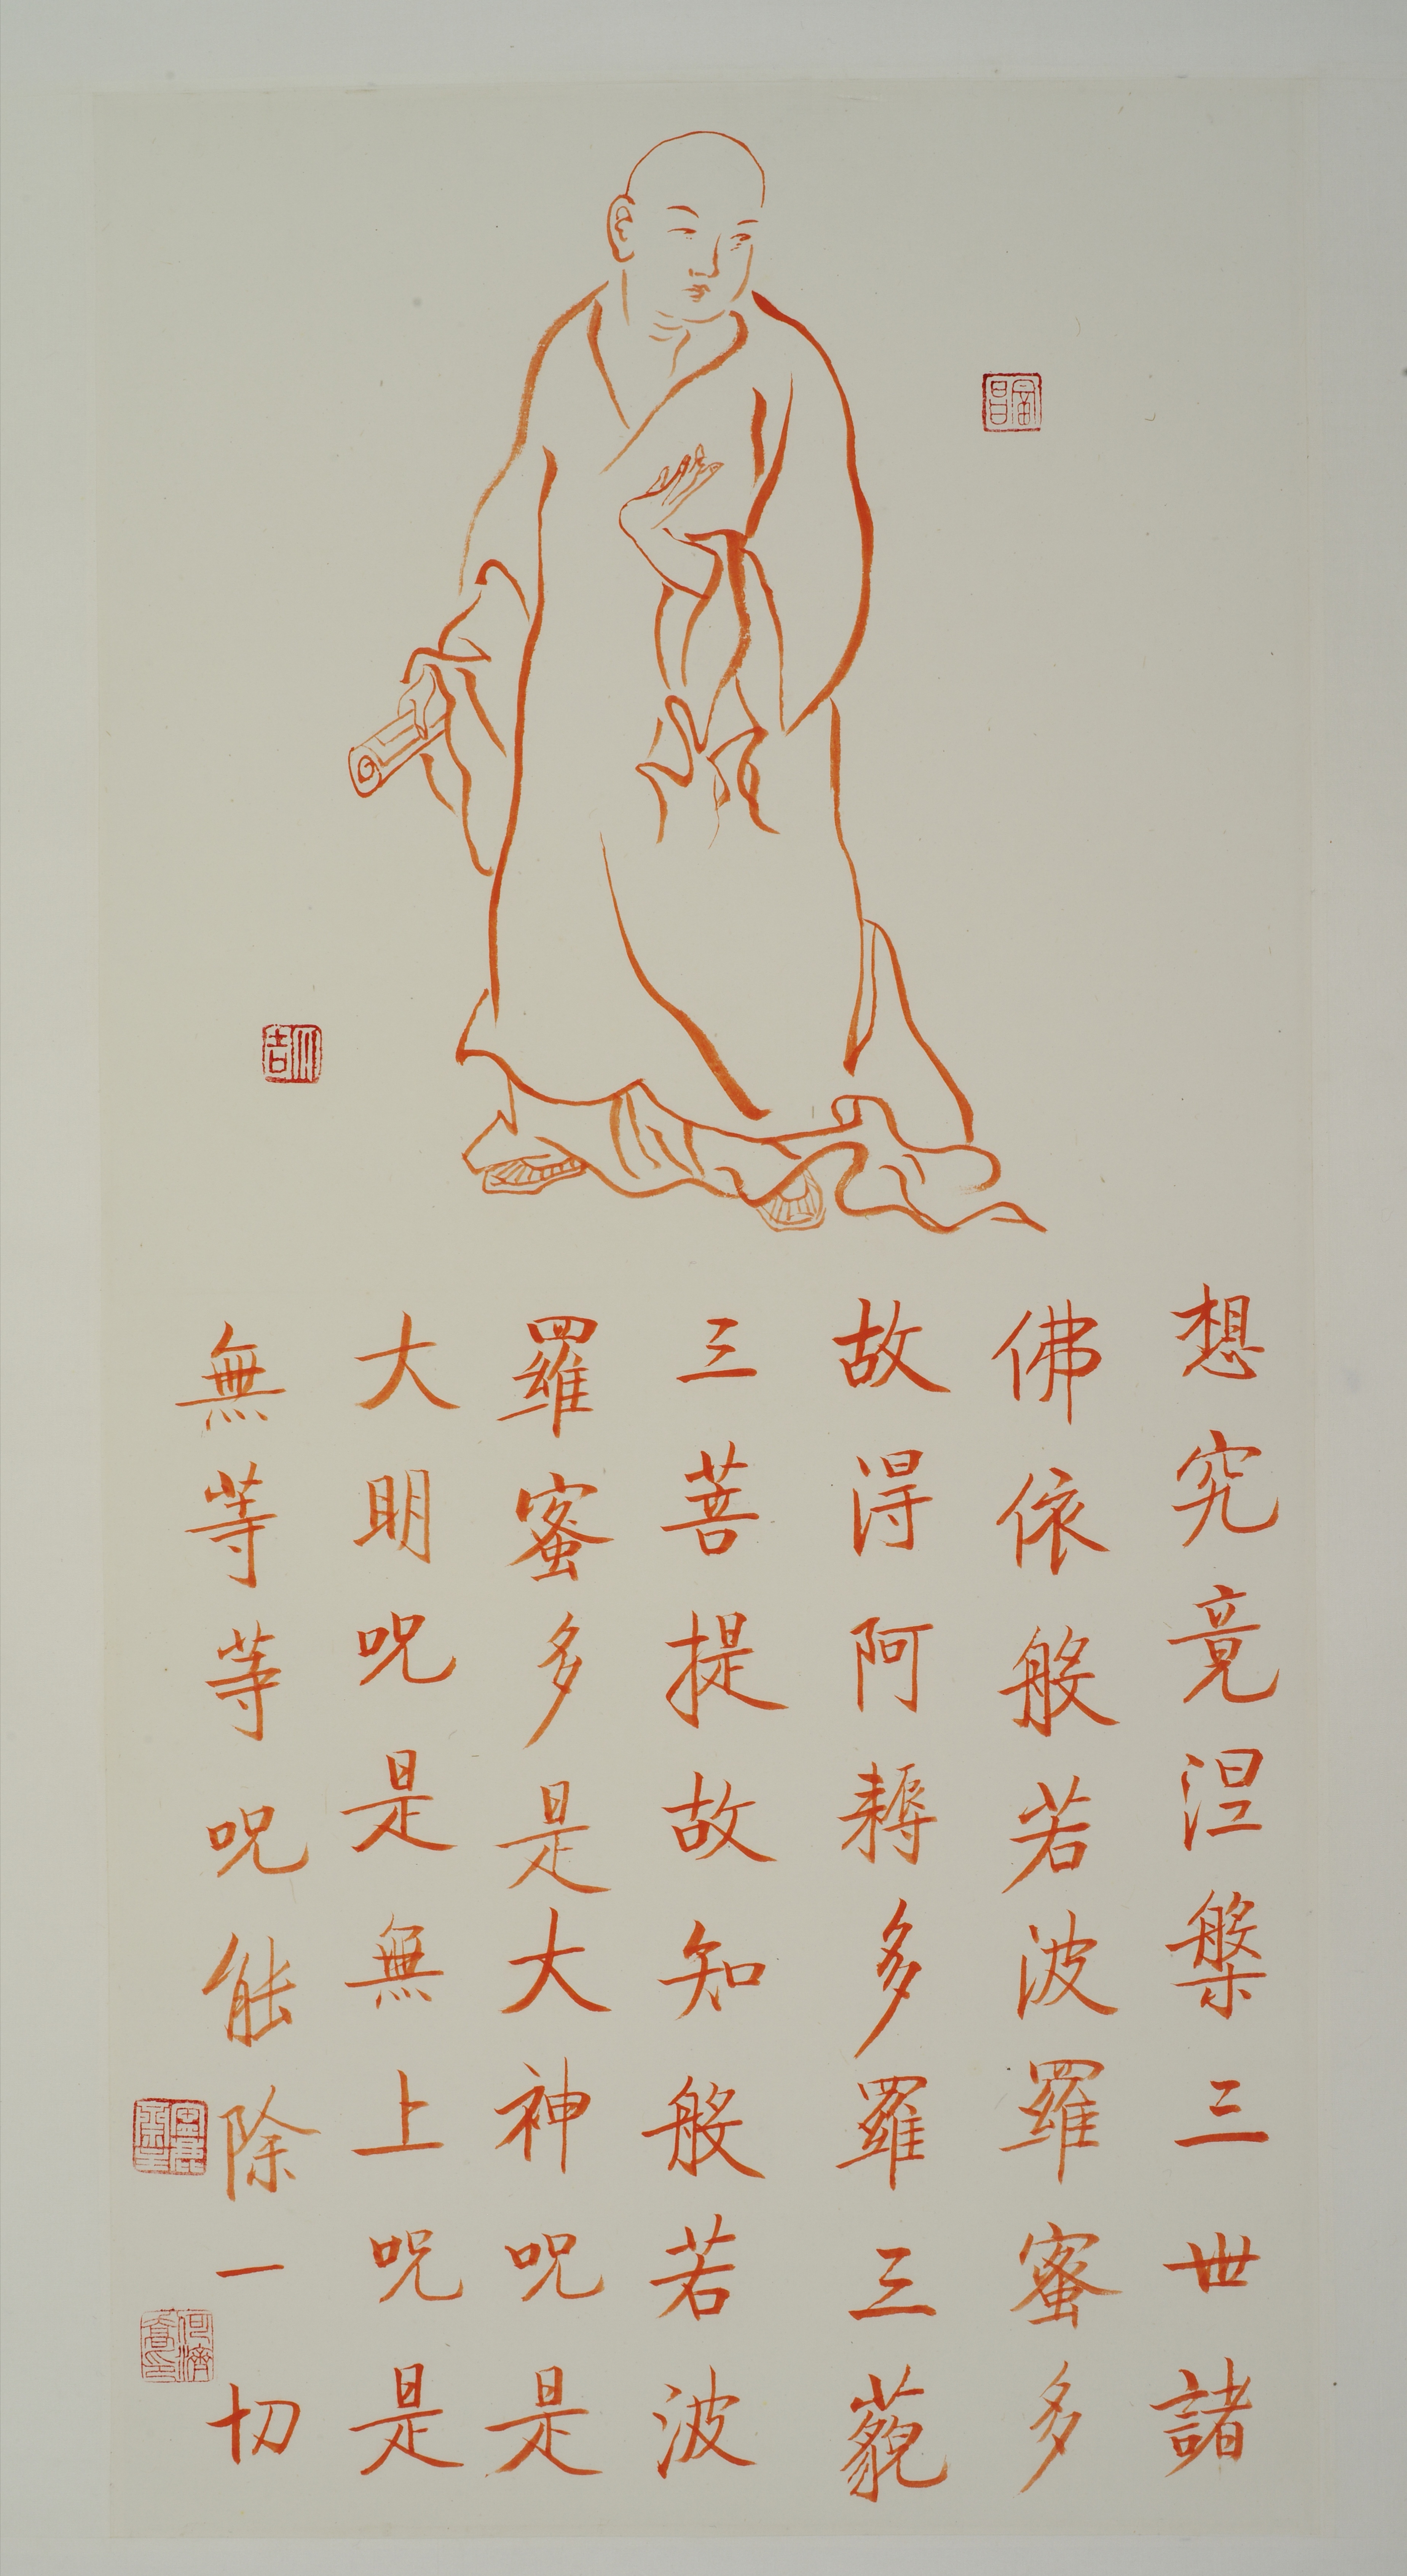 想究竟涅槃三世諸
佛依般若波羅蜜多
故得阿耨多羅三藐
三菩提故知般若波
羅蜜多是大神呪是
大明呪是無上呪是
無等等呪能除一切